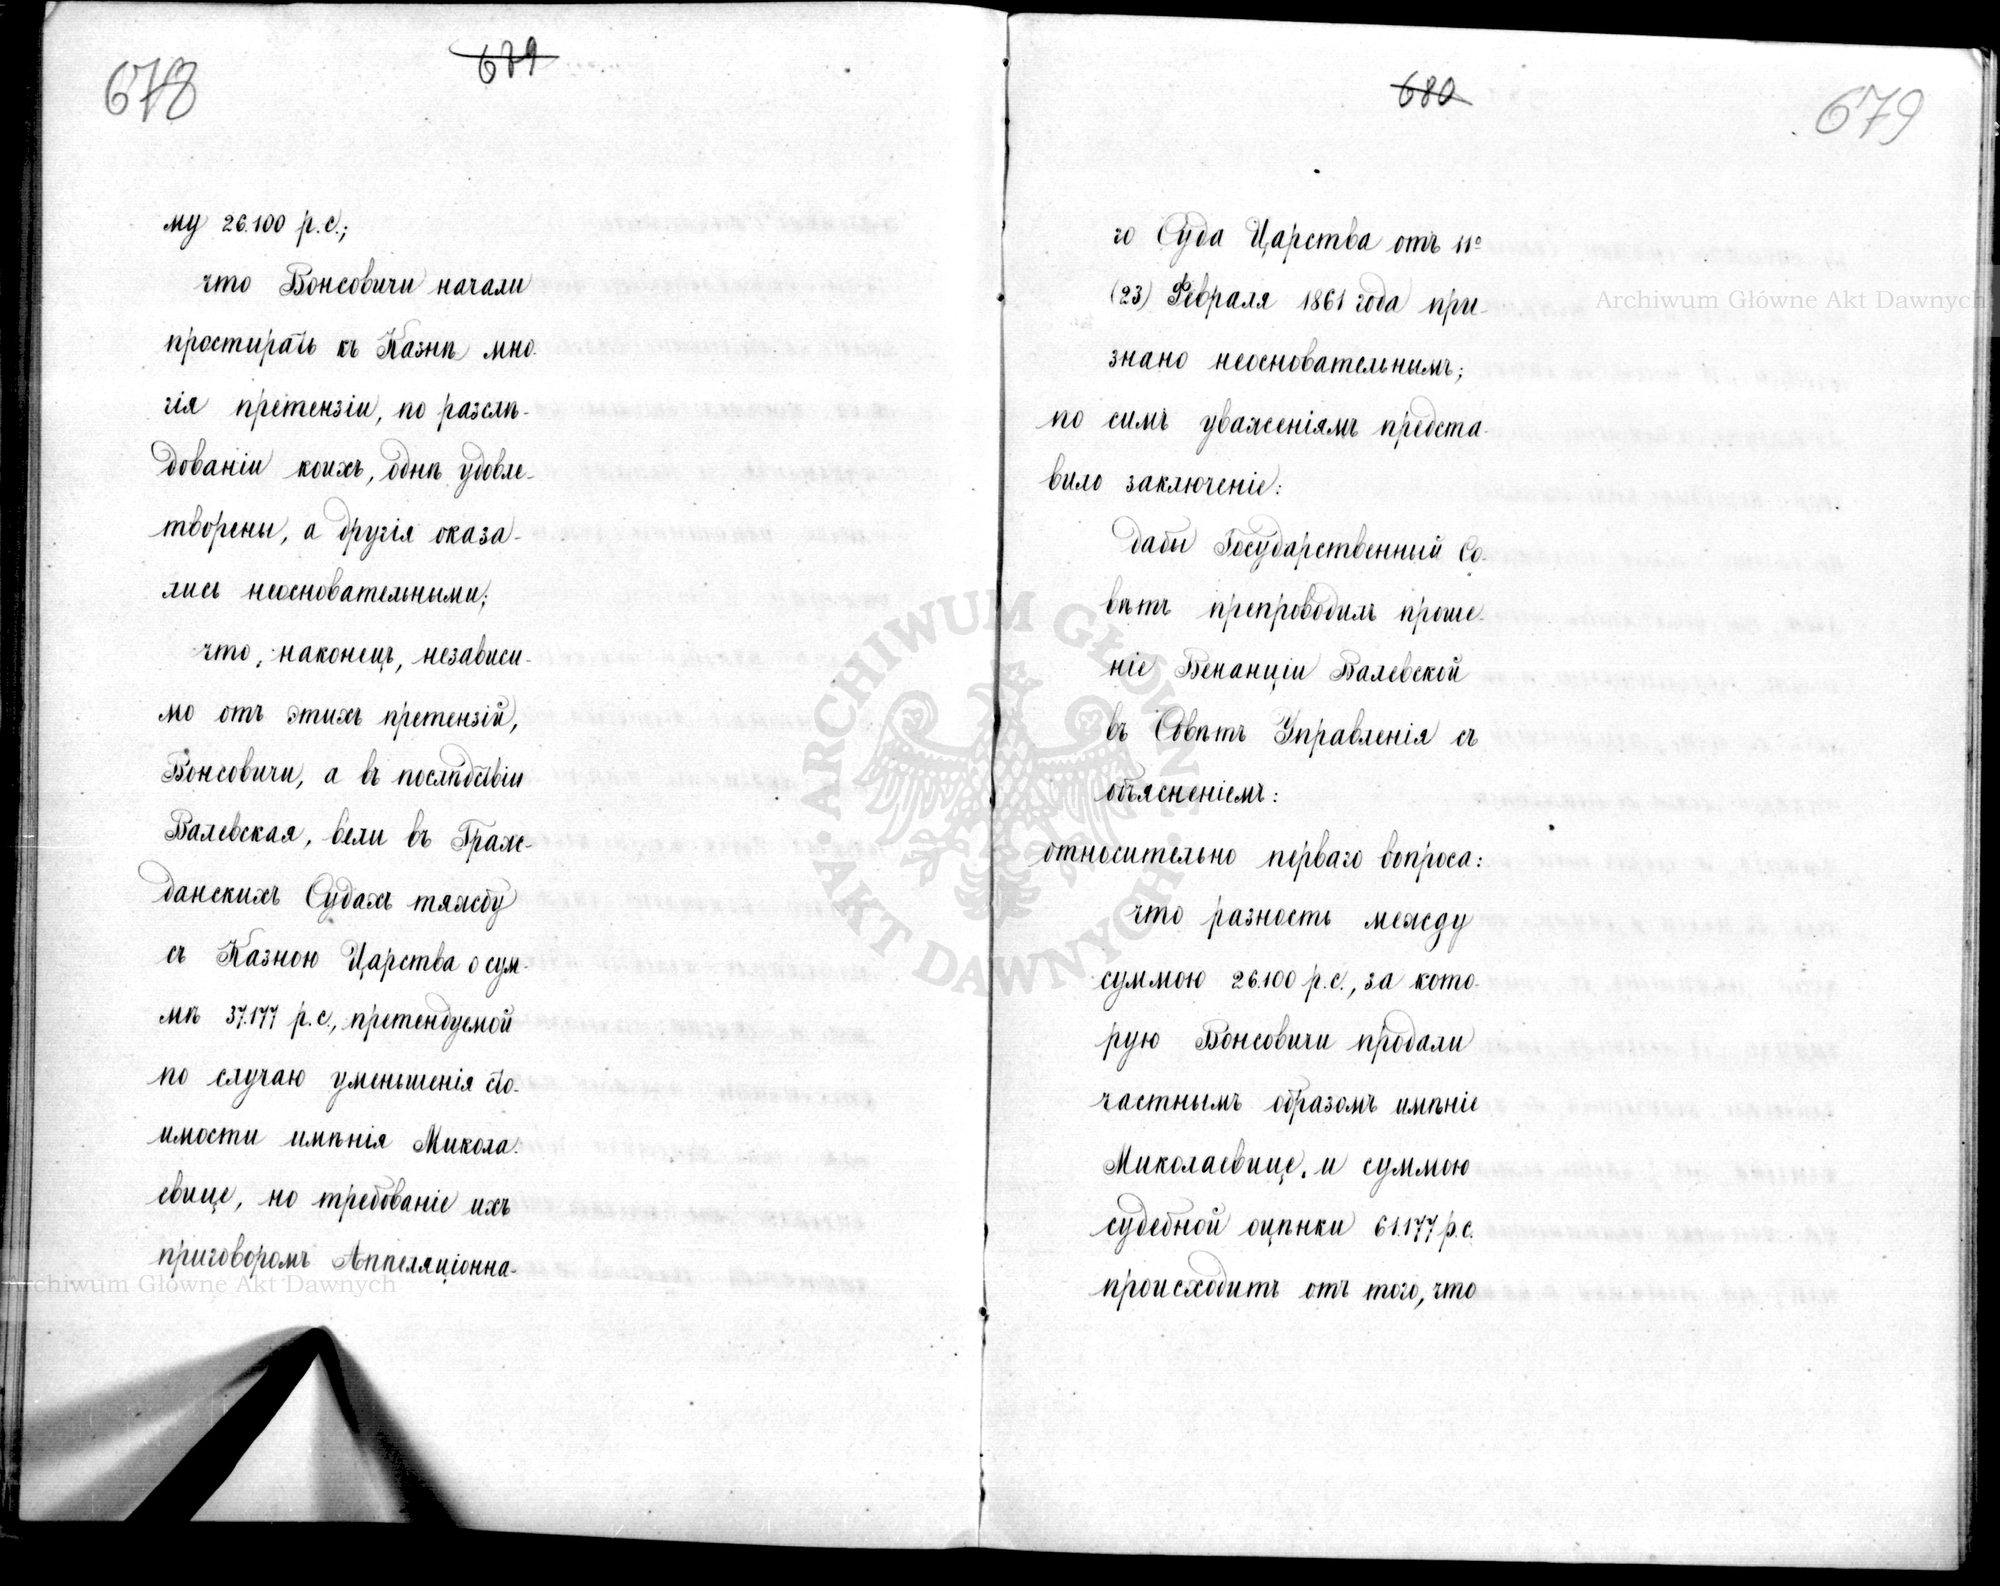 678
679
му 26.100 р. с.;
что Вонсовичи начали
простирать къ Казнѣ мно-
гія претензіи, по разслѣ-
дованіи коихъ, однѣ удовле-
творены, а другія оказа-
лись неосновательными;
что, наконецъ, независи-
мо отъ этихъ претензій,
Вонсовичи, а въ послѣдствіи
Валевская, вели въ Граж-
данскихъ Судахъ тяжбу
съ Казною Царства о сум-
мѣ 37.177 р. с., претендуемой
по случаю уменьшенія сто-
имости имѣнія Микола-
евице, но требованіе ихъ
приговоромъ Аппеляціонна-
680
679
го Суда Царства отъ 11º
(23) Февраля 1861 года при-
знано неосновательнымъ;
по симъ уваженіямъ предста-
вило заключеніе:
дабы Государственный Со-
вѣтъ препроводилъ проше-
ніе Венанціи Валевской
въ Совѣтъ Управленія съ
объясненіемъ:
относительно перваго вопроса:
что разность между
суммою 26.100 р. с., за кото-
рую Вонсовичи продали
частнымъ образомъ имѣніе
Миколаевице, и суммою
судебной оцѣнки 61.177 р. с.
происходитъ отъ того, что
Archiwum Główne Akt Dawnych
Archiwum Główne Akt Dawnych
ARCHIWUM GŁÓWNE AKT DAWNYCH